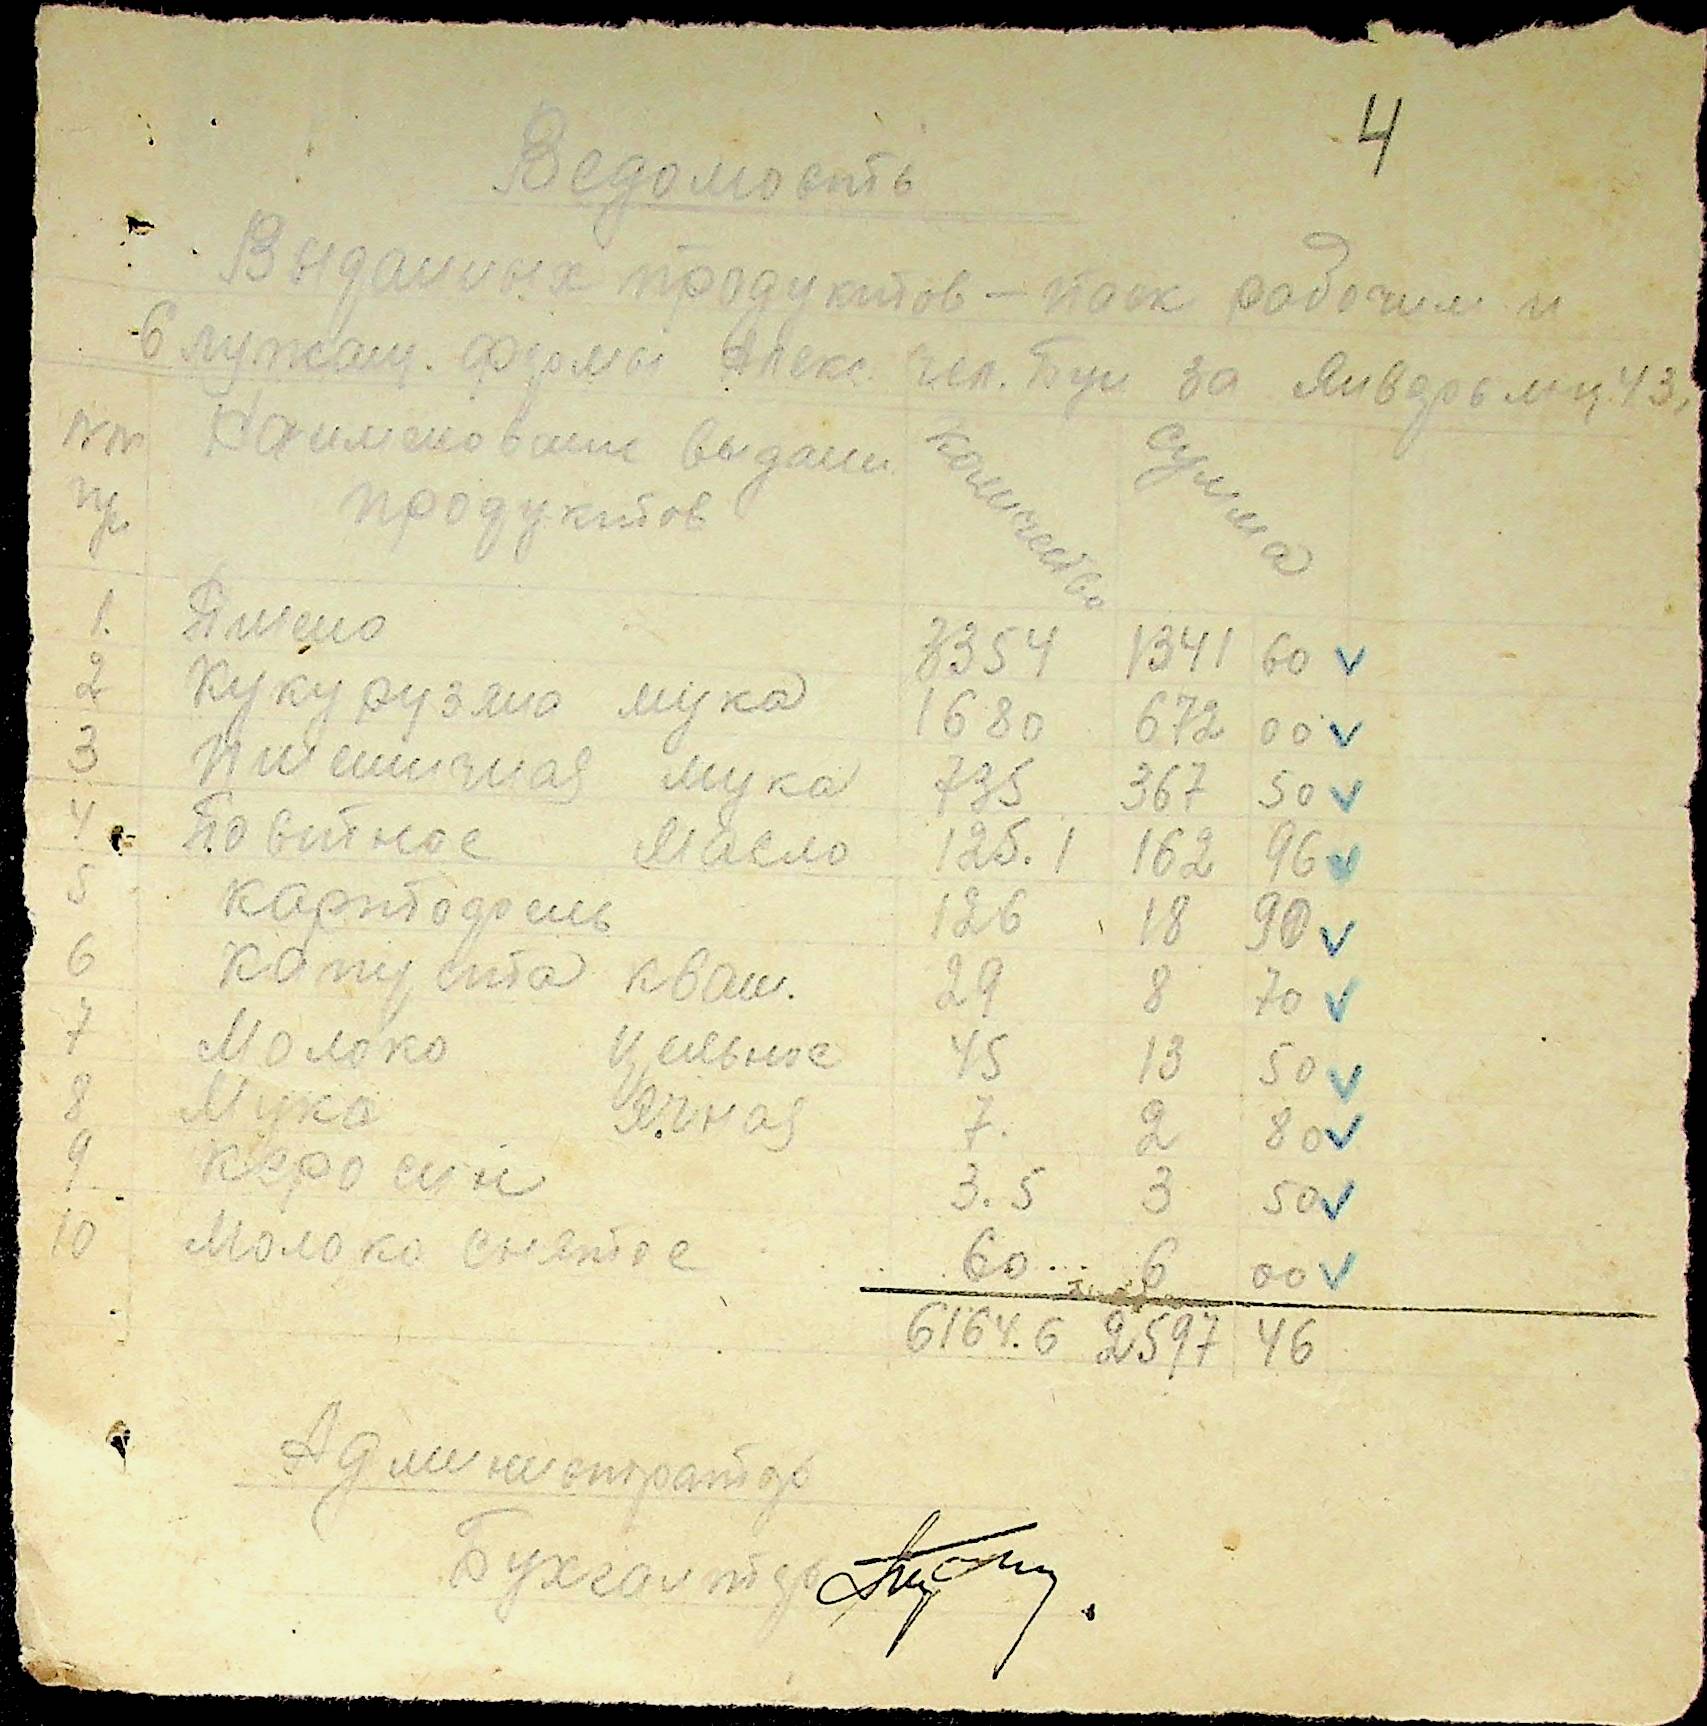 4
Ведомость
Выданных продуктов – паек рабочим и
Служащ. фермы Алекс. за Январь м-ц 43,
NN Наименование выдан. Количество Сумма
п/п продуктов
1. Пшено 3354 1341 60 v
2 Кукурузная мука 1680 672 00 v
3 Пшеничная мука 735 367 50 v
4 Постное Масло 125.1 162 96 v
5 Картофель 126 18 90 v
6 Капуста кваш. 29 8 70 v
7 Молоко цельное 45 13 50 v
8 Мука Ячная 7. 2 80 v
9 Керосин 3.5 3 50 v
10 Молоко снятое 60 6 00 v
6164.6 2597 46
Администратор
Бухгалтер